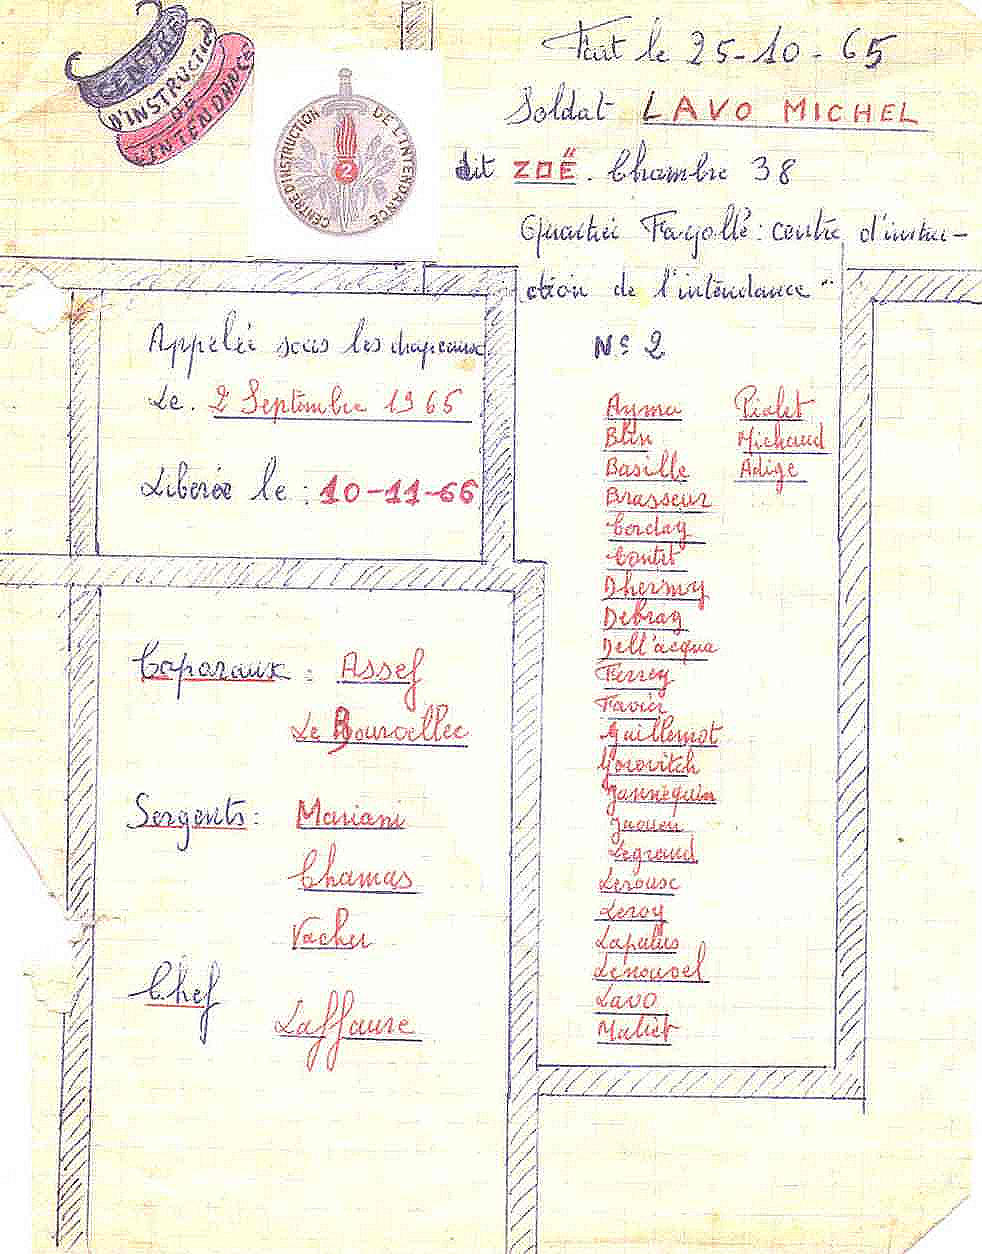 CENTRE
D'INSTRUCTION
DE
L'INTENDANCE
CENTRE D'INSTRUCTION DE L'INTENDANCE
2
Fait le 25-10-65
Soldat LAVO MICHEL
dit ZOË. Chambre 38
Quartier Fayolle: centre d'instru-
ction de l'intendance"
N° 2
Appelée sous les drapeaux
Le. 2 Septembre 1965
Liberée le: 10-11-66
Ayma Pialet
Blin Michaud
Basille Adige
Brasseur
Corday
Contet
Dhermy
Debray
Dell'acqua
Ferrey
Favier
Guillemot
Gorovitch
Jannequin
Jaouen
Legrand
Leroux
Leroy
Lapalus
Lenouvel
Lavo
Maliet
Caporaux: Assef
Le Bourvellec
Sergents: Mariani
Chamas
Vacher
Chef
Laffaure